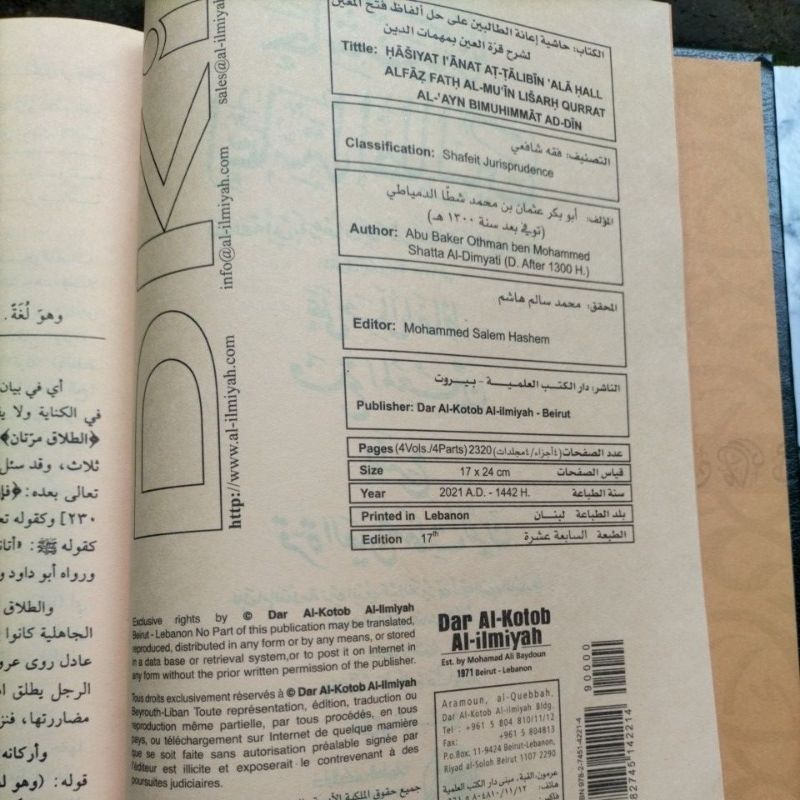 الكتاب: حاشية إعانة الطالبين على حل ألفاظ فتح المعين
لشرح قرة العين بمهمات الدين
Tittle: ḤĀŠIYAT I'ĀNAT AṬ-ṬĀLIBĪN 'ALĀ ḤALL
ALFĀẒ FATḤ AL-MU'ĪN LIŠARḤ QURRAT
AL-'AYN BIMUHIMMĀT AD-DĪN
التصنيف: فقه شافعي
Classification: Shafeit Jurisprudence
المؤلف: أبو بكر عثمان بن محمد شطا الدمياطي
(توفي بعد سنة ١٣٠٠ هـ)
Author: Abu Baker Othman ben Mohammed
Shatta Al-Dimyati (D. After 1300 H.)
المحقق: محمد سالم هاشم
Editor: Mohammed Salem Hashem
الناشر: دار الكتب العلمية - بيروت
Publisher: Dar Al-Kotob Al-ilmiyah - Beirut
Pages (4Vols./4Parts) 2320 (٤أجزاء/٤مجلدات) عدد الصفحات
Size 17 x 24 cm قياس الصفحات
Year 2021 A.D. - 1442 H. سنة الطباعة
Printed in Lebanon بلد الطباعة لبنان
Edition 17th الطبعة السابعة عشرة
DKi
http://www.al-ilmiyah.com
info@al-ilmiyah.com
sales@al-ilmiyah.com
Exclusive rights by © Dar Al-Kotob Al-Ilmiyah
Beirut - Lebanon No Part of this publication may be translated,
reproduced, distributed in any form or by any means, or stored
in a data base or retrieval system, or to post it on Internet in
any form without the prior written permission of the publisher.
Tous droits exclusivement réservés à © Dar Al-Kotob Al-Ilmiyah
Beyrouth-Liban Toute représentation, édition, traduction ou
reproduction même partielle, par tous procédés, en tous
pays, ou téléchargement sur Internet de quelque manière
que se soit faite sans autorisation préalable signée par
l'éditeur est illicite et exposerait le contrevenant à des
poursuites judiciaires.
جميع حقوق الملكية
Dar Al-Kotob
Al-ilmiyah
Est. by Mohamad Ali Baydoun
1971 Beirut - Lebanon
Aramoun, al-Quebbah,
Dar Al-Kotob Al-ilmiyah Bldg.
Tel : +961 5 804 810/11/12
Fax: +961 5 804813
P.o.Box: 11-9424 Beirut-Lebanon,
Riyad al-Soloh Beirut 1107 2290
عرمون، القبة، مبنى دار الكتب العلمية
90000
978-2-7451-4221-4
782745142214
وهو لُغَةً.
أي في بيان
في الكناية ولا
﴿الطلاق مرّتان﴾
ثلاث، وقد سئل
تعالى بعده:
٢٣٠] وكقوله
كقوله ﷺ:
ورواه أبو داود
والطلاق
الجاهلية كانوا
عادل روى
الرجل يطلق
مضاررتها،
وأركانه
قوله: (وهو